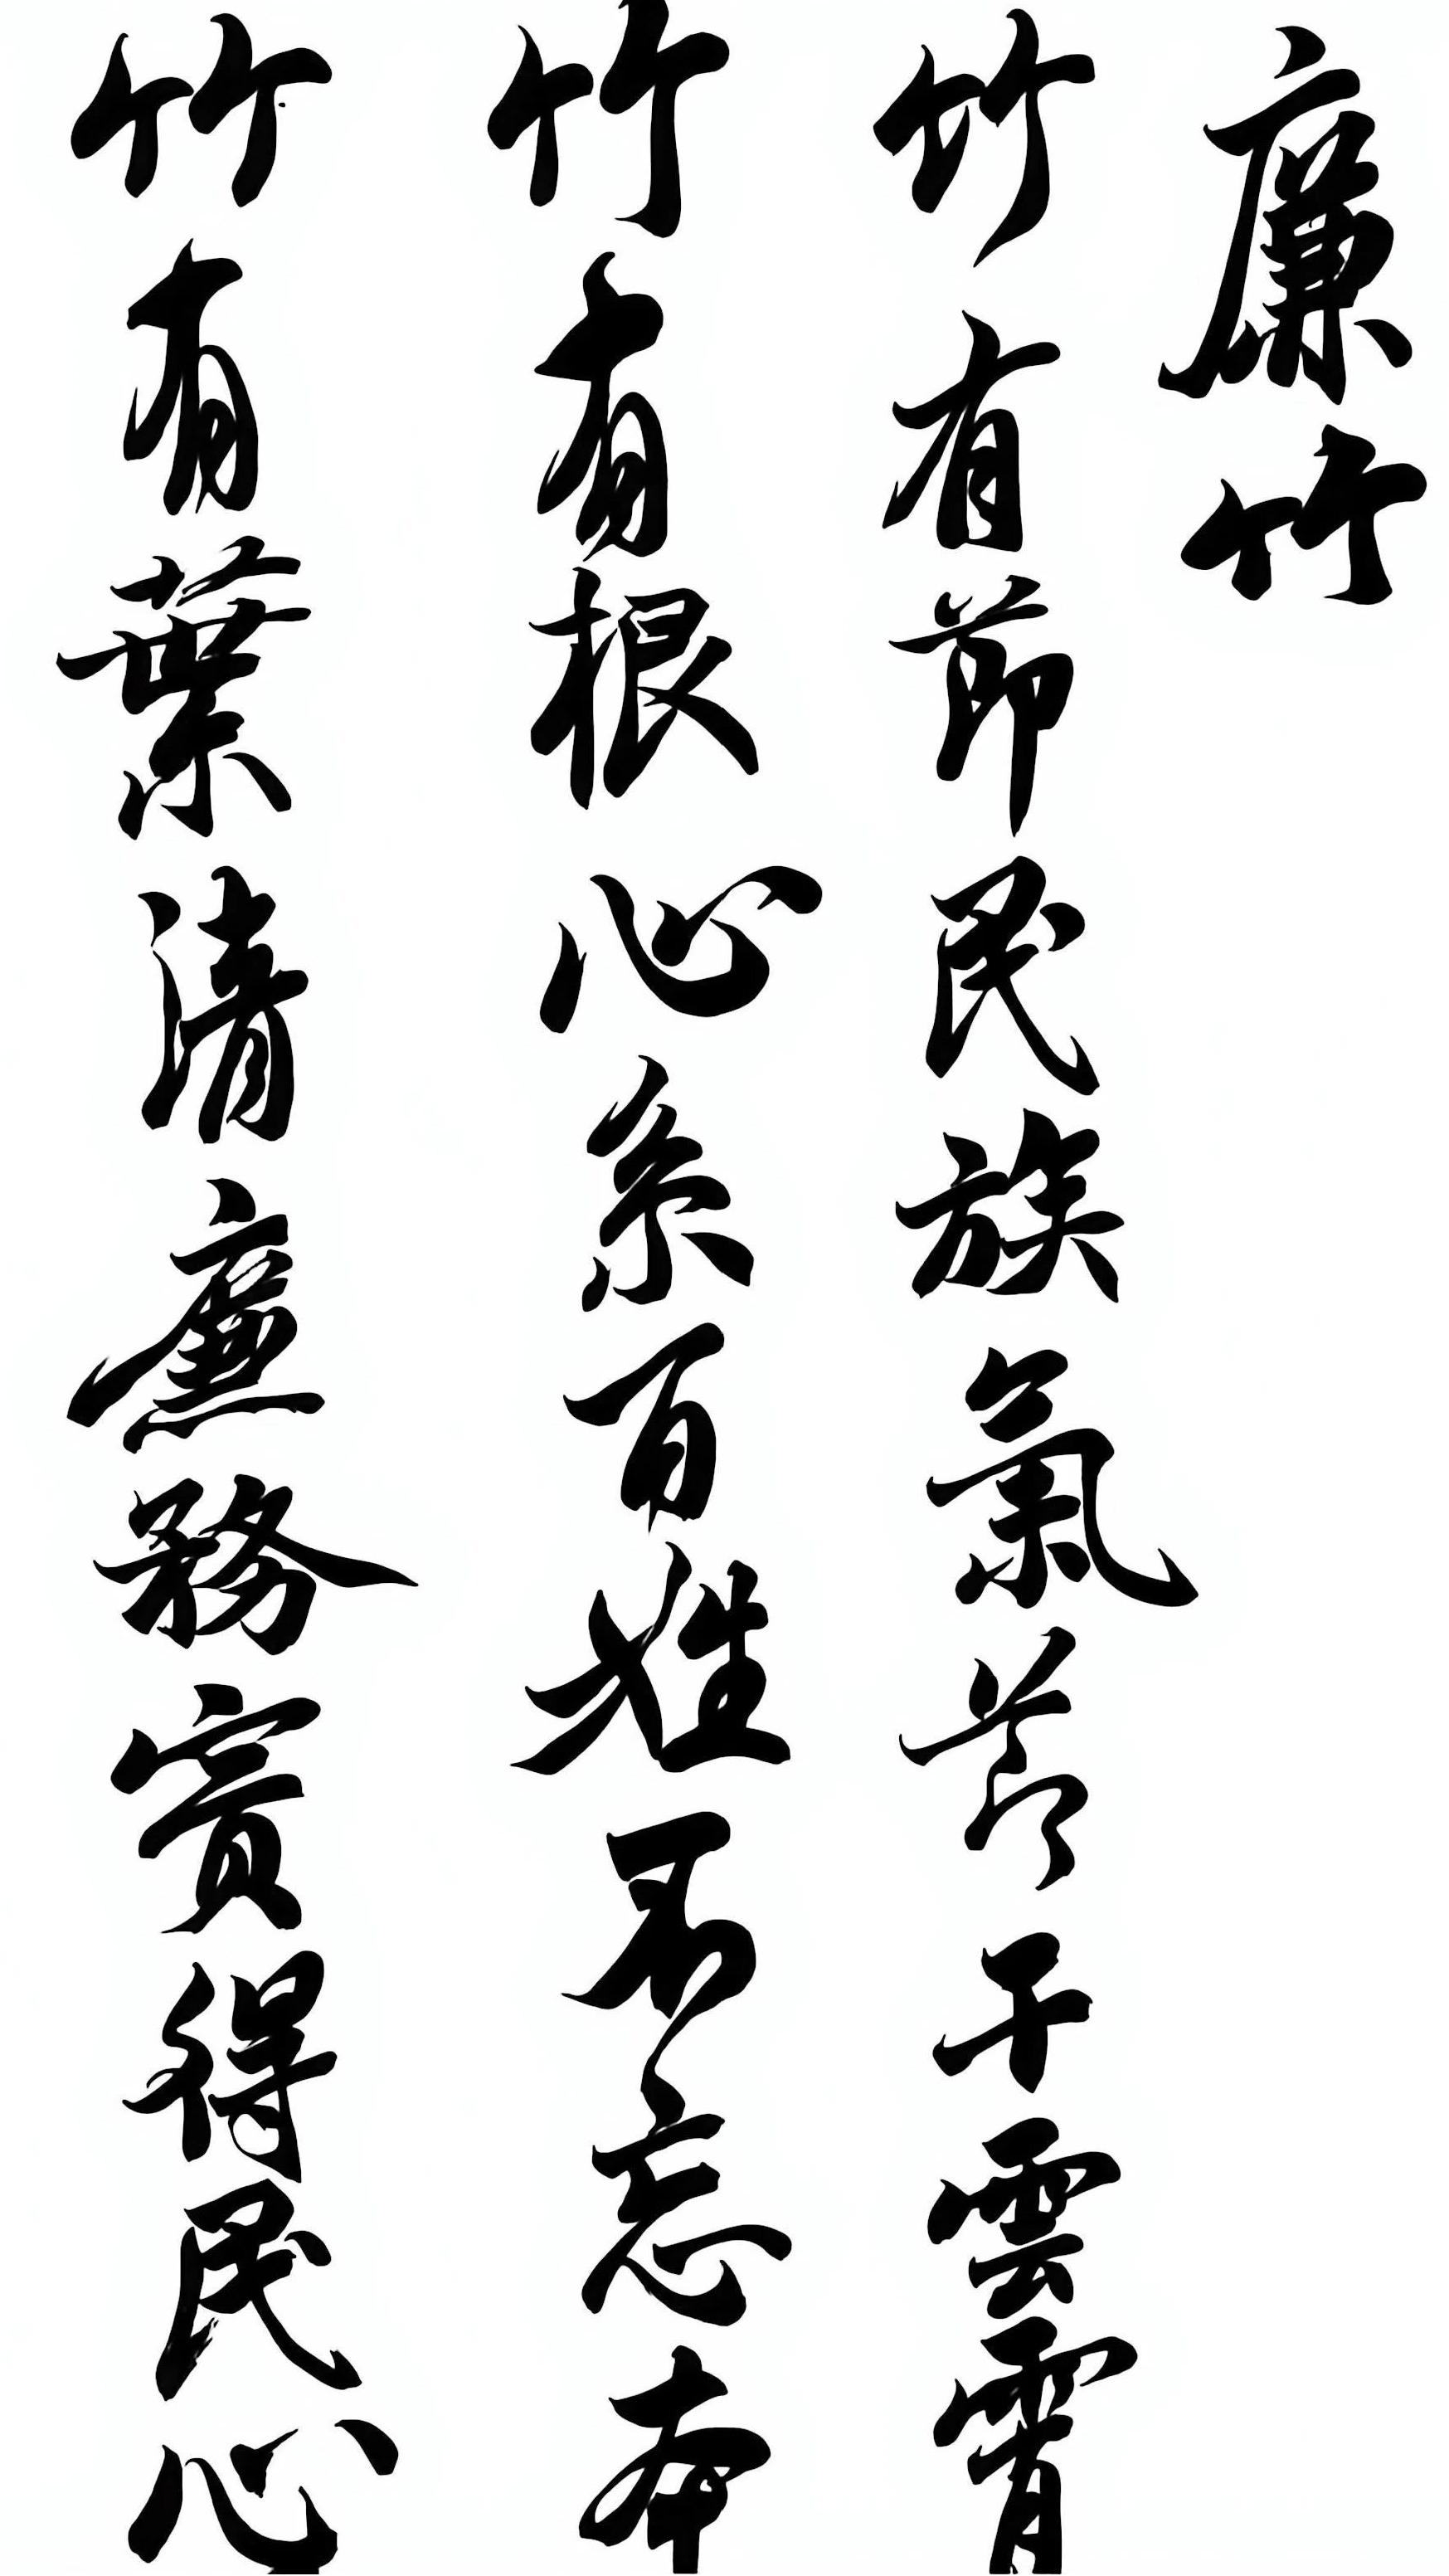 廉竹
竹有節民族氣節干雲霄
竹有根心系百姓不忘本
竹有葉清廉務實得民心